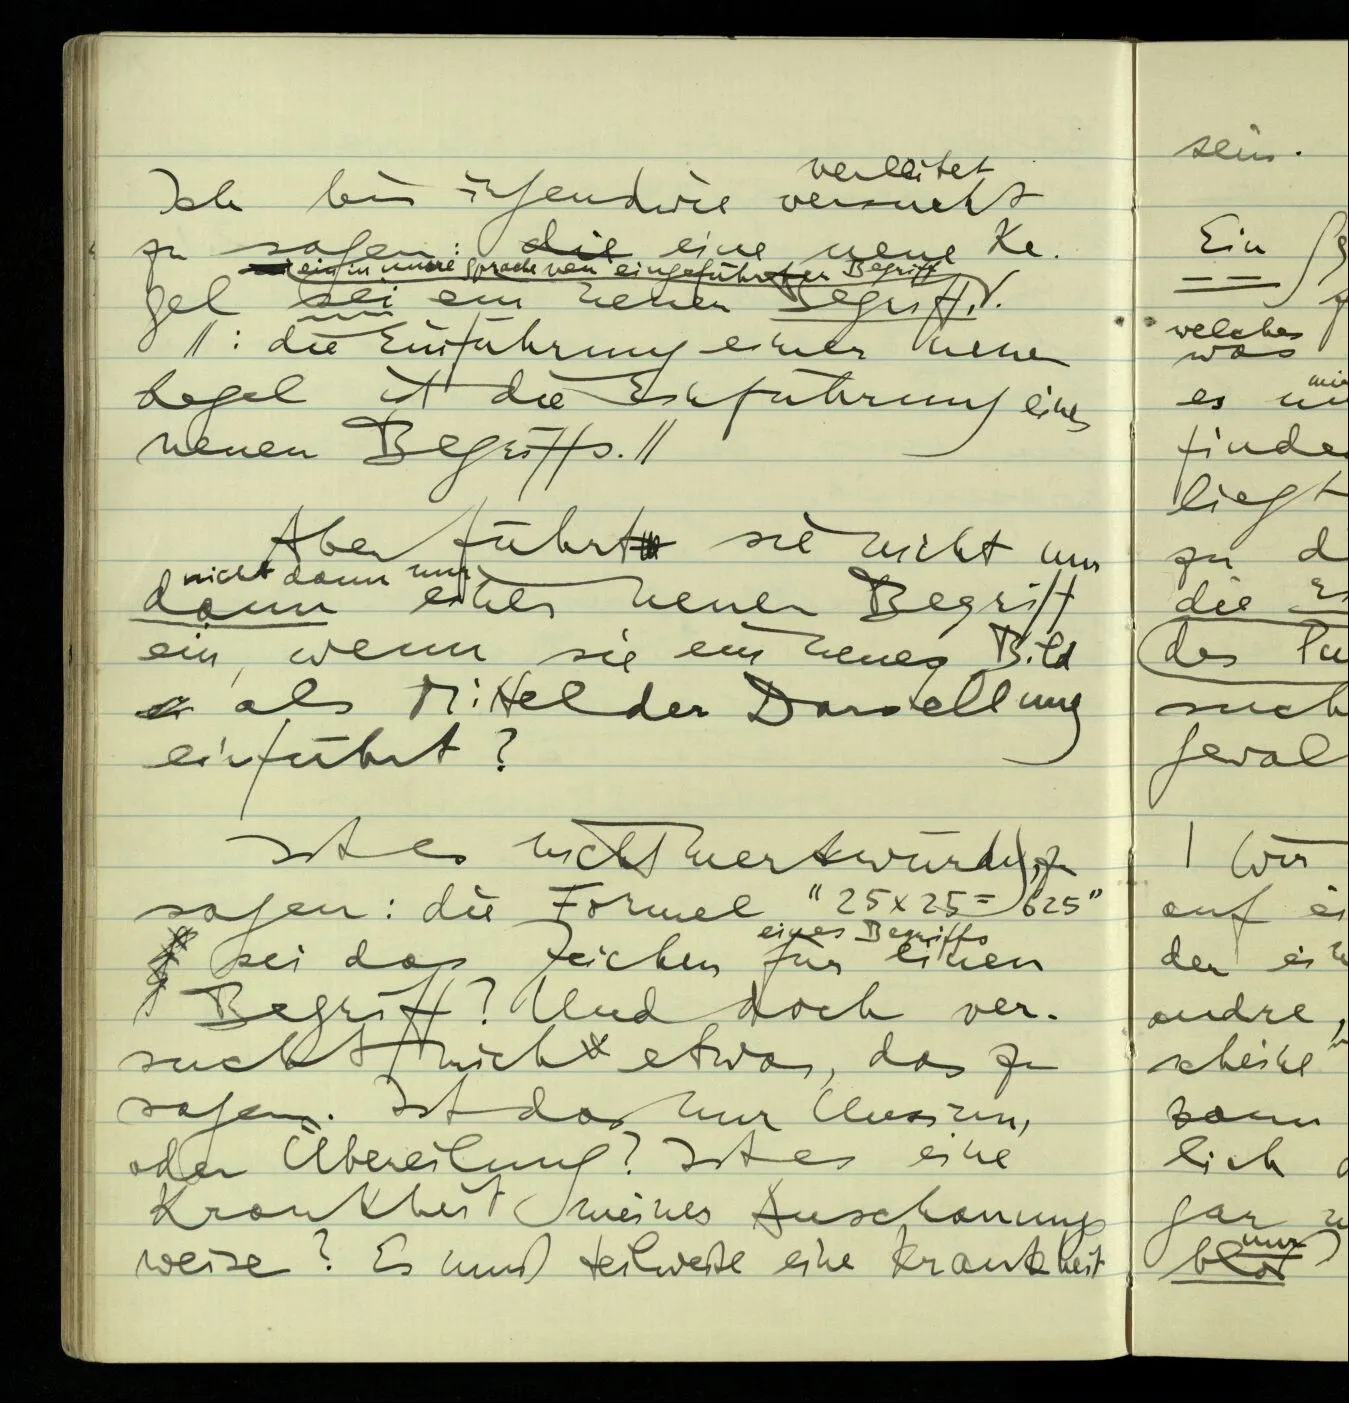 verleitet
Ich bin irgendwie versucht
zu sagen: die eine neue Re-
ein in unsre Sprache neu eingeführter Begriff
gel sei ein neuer Begriff.
//: die Einführung einer neuen
Regel ist die Einführung eines
neuen Begriffs.//
Aber führt sie nicht nur
nicht dann nur
dann einen neuen Begriff
ein, wenn sie ein neues Bild
als Mittel der Darstellung
einführt?
Ist es nicht merkwürdig, zu
sagen: die Formel "25x25=625"
eines Begriffs
sei das Zeichen für einen
Begriff? Und doch ver-
sucht mich etwas, das zu
sagen. Ist das nur Illusion,
oder Übereilung? Ist es eine
Krankheit meiner Anschauungs
weise? Es muß teilweise eine Krankheit
sein.
Ein
welches
was
es
finde
liegt
zu d
die
des
such
gewal
| Wir
auf ei
der ein
andre,
scheine
lich
gar
nur
bloß